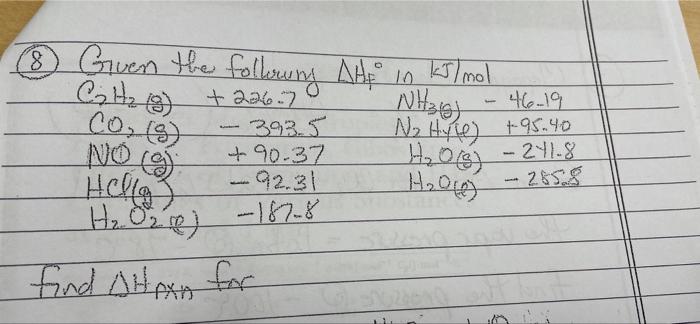 ⑧ Given the following ΔHf° in kJ/mol
C2H2 (g) + 226.7 NH3(g) - 46.19
CO2 (g) - 393.5 N2H4(l) +95.40
NO (g) + 90.37 H2O(g) - 241.8
HCl(g) - 92.31 H2O(l) - 285.8
H2O2(l) - 187.8
find ΔHrxn for